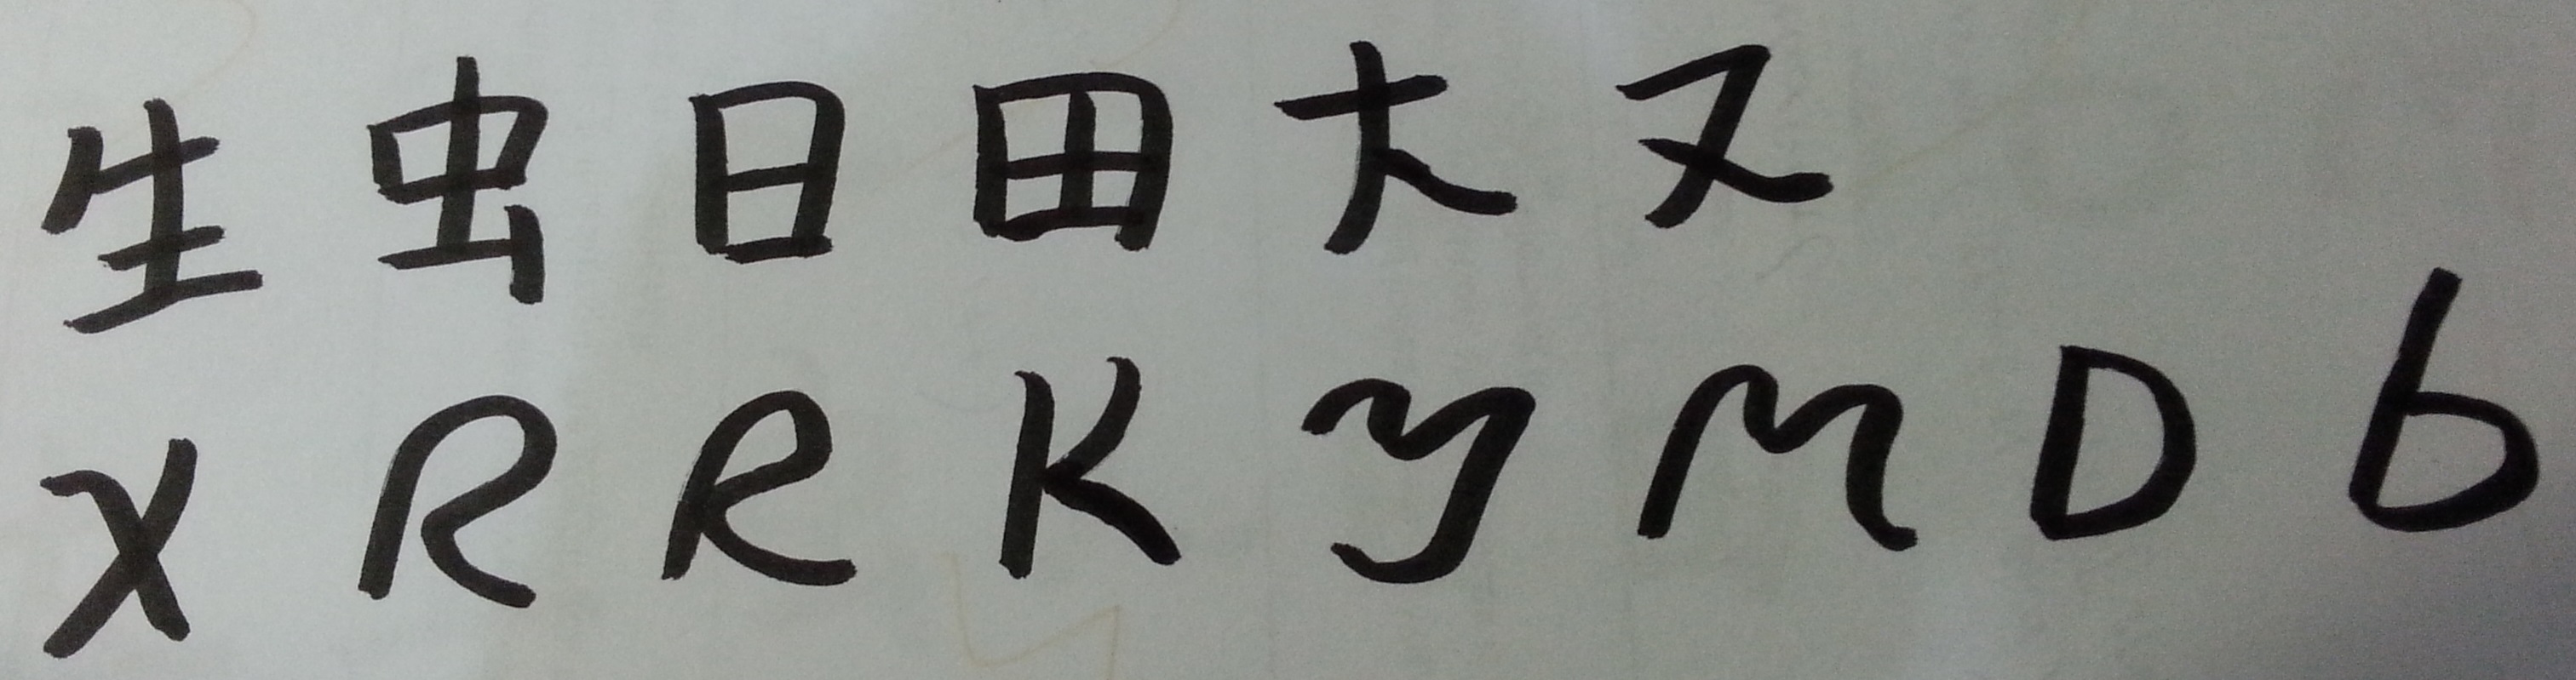 生 虫 日 田 大 又
X R R K y M D b